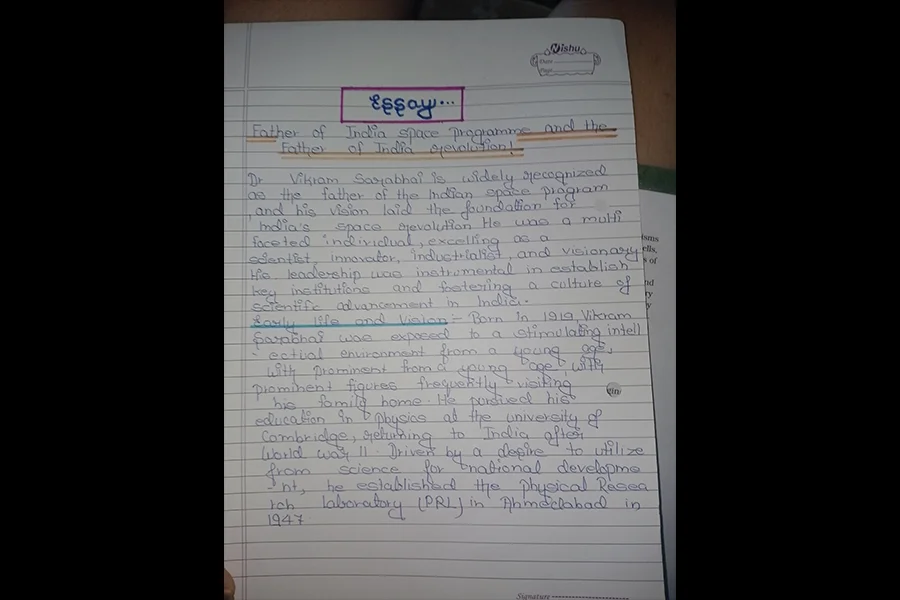 Nishu
Date
Page
Essay...
Father of India space programme and the
Father of India revolution!
Dr Vikram Sarabhai is widely recognized
as the father of the Indian space program
,and his vision laid the foundation for
India's space revolution He was a multi
faceted individual, excelling as a
scientist, innovator, industrialist, and visionary
His leadership was instrumental in establish
key institutions and fostering a culture of
scientific advancement in India.
Early life and Vision = Born in 1919, Vikram
Sarabhai was exposed to a stimulating intell
- ectual environment from a young age,
with prominent from a young age, with
prominent figures frequently visiting
his family home. He pursived his
education in Physics at the university of
Cambridge, returning to India after
World war II. Driven by a desire to utilize
from science for national developme
- nt, he established the Physical Resea
rch laboratory (PRL) in Ahmedabad in
1947
Signature
isms
ells,
s of
nd
ry
y